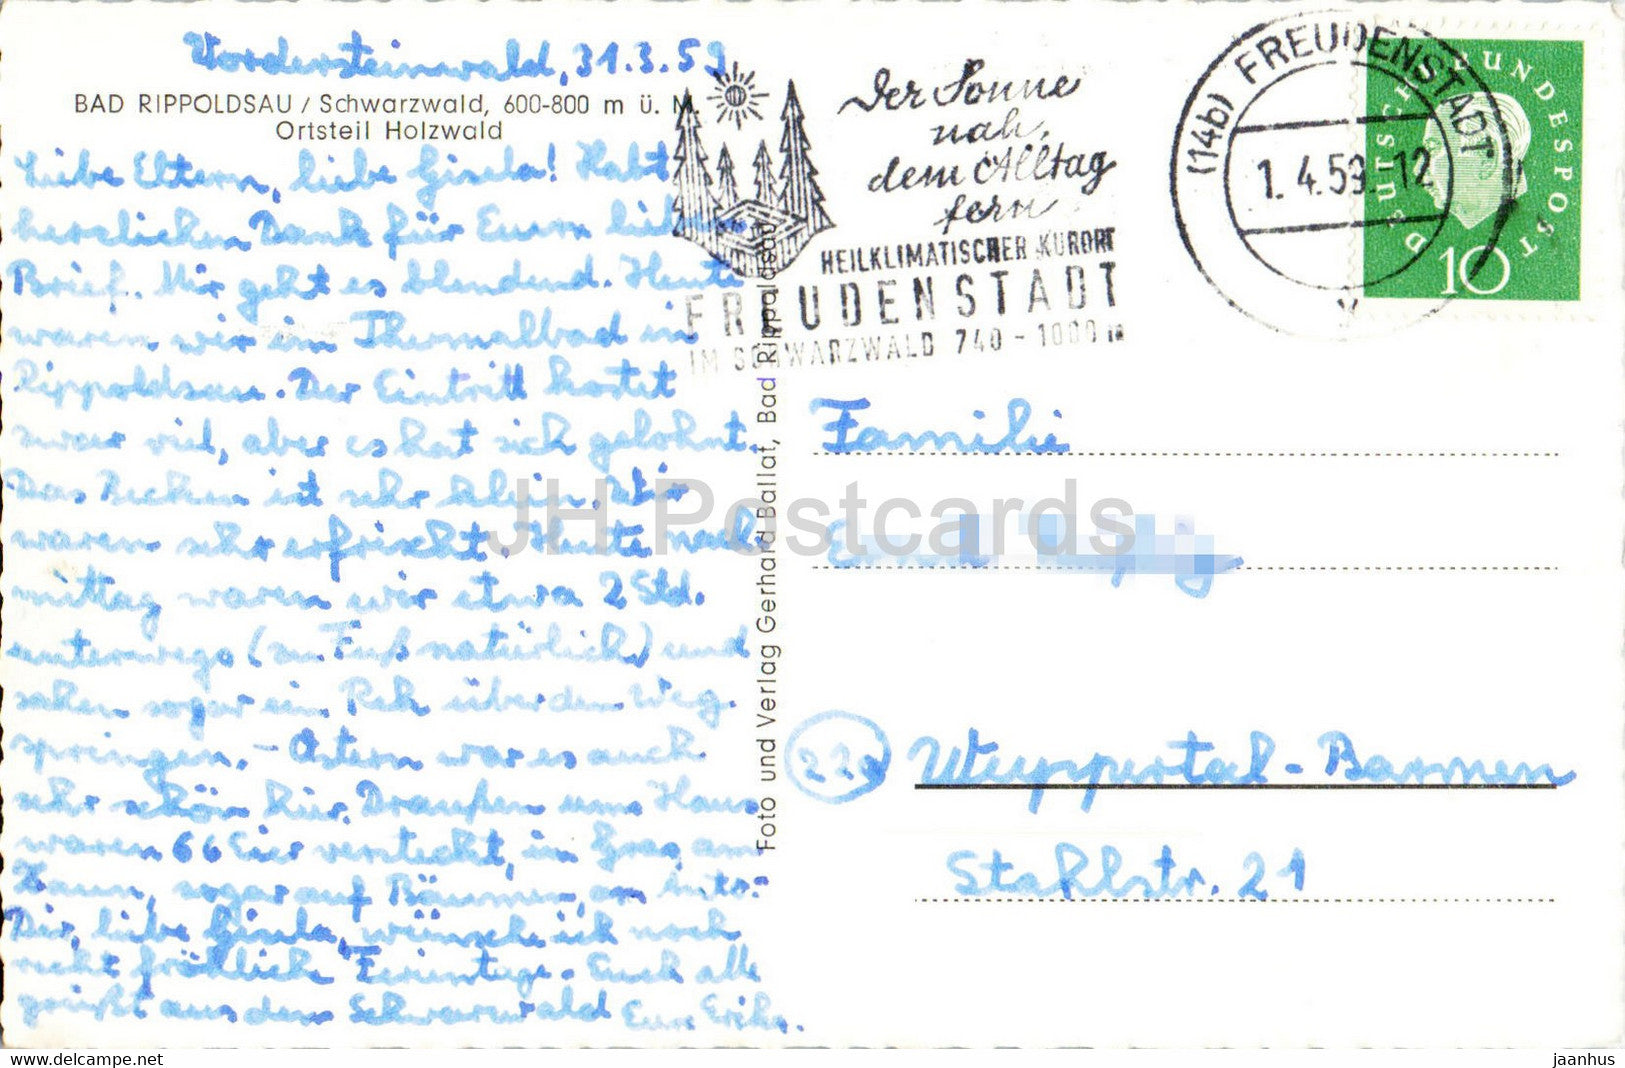 Vordersteinwald, 31.3.59
BAD RIPPOLDSAU / Schwarzwald, 600-800 m ü. M.
Ortsteil Holzwald
Liebe Eltern, liebe Gisela! Habt
herzlichen Dank für Euren lieben
Brief. Mir geht es blendend. Heute
waren wir im Thermalbad in
Rippoldsau. Der Eintritt kostet
zwar viel, aber es hat sich gelohnt.
Das Becken ist sehr klein. Wir
waren sehr erfrischt. Heute nach-
mittag waren wir etwa 2 Std.
unterwegs (zu Fuß natürlich) und
sahen sogar ein Reh über den Weg
springen. - Ostern war es auch
sehr schön hier. Draußen ums Haus
waren 66 Eier versteckt, im Gras, am
Zaun, sogar auf Bäumen, an
Dir, liebe Gisela, wünsche ich noch
recht fröhlich Ferientage. Euch alle
grüßt aus dem Schwarzwald Eure Erika.
Foto und Verlag Gerhard Ballat, Bad Rippoldsau
Der Sonne
nah,
dem Alltag
fern
HEILKLIMATISCHER KURORT
FREUDENSTADT
IM SCHWARZWALD 740 - 1000 m
(14b) FREUDENSTADT
1.4.59.-12
v
DEUTSCHE BUNDESPOST
10
Familie
22a
Wuppertal-Barmen
Stahlstr. 21
JH Postcards
delcampe.net
jaanhus